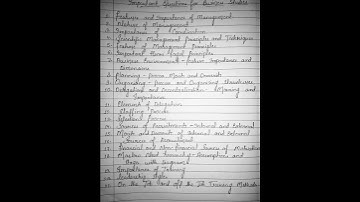 Important Questions for Business Studies
1. Features and Importance of Management
2. Nature of Management
3. Importance of Coordination
4. Scientific Management Principles and Techniques
5. Nature of Management Principles
6. Important Henri Fayol Principles
7. Business Environment - feature Importance and
8. Planning - process Merits and Demerits
9. Organising - process and Organising Structures
10. Delegation and Decentralisation (Meaning and
Importance
11. Element of Delegation
12. Staffing Process
13. Selection process
14. Sources of Recruitments - Internal and External
15. Merits and Demerits of Internal and External
Sources of Recruitment
16. Financial and Non financial Sources of Motivation
17. Maslow Need Hierarchy - Assumptions and
with diagram
18. Importance of Training
19. Leadership Styles
20. On the Job and off the Job Training Methods